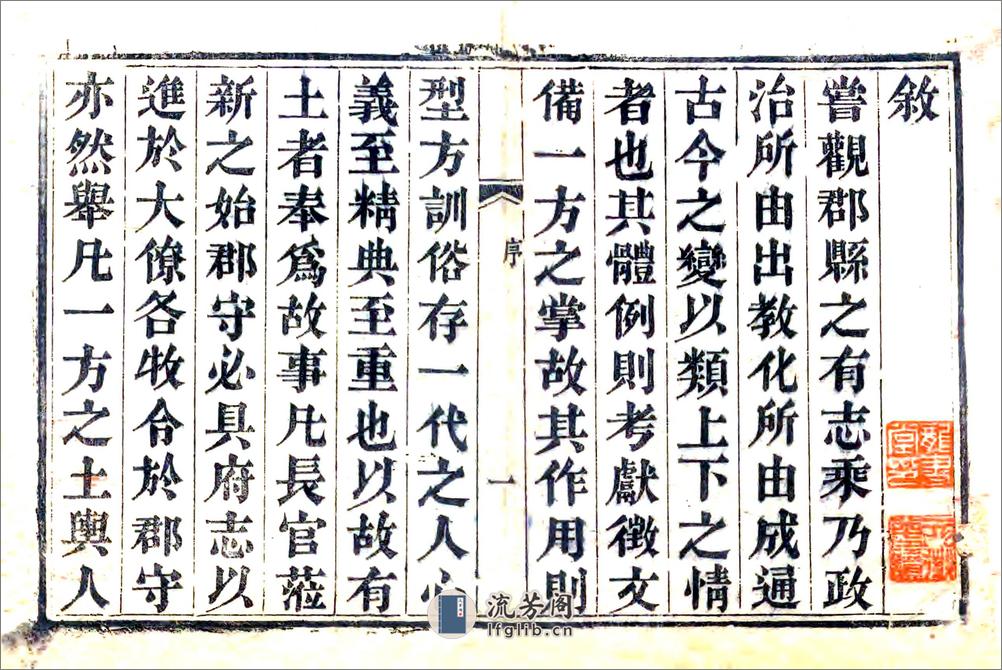 敘
嘗觀郡縣之有志乘乃政
治所由出教化所由成通
古今之變以類上下之情
者也其體例則考獻徵文
備一方之掌故其作用則
序
一
型方訓俗存一代之人心
義至精典至重也以故有
土者奉爲故事凡長官蒞
新之始郡守必具府志以
進於大僚各牧令於郡守
亦然舉凡一方之土輿人
流芳阁
lfglib.cn